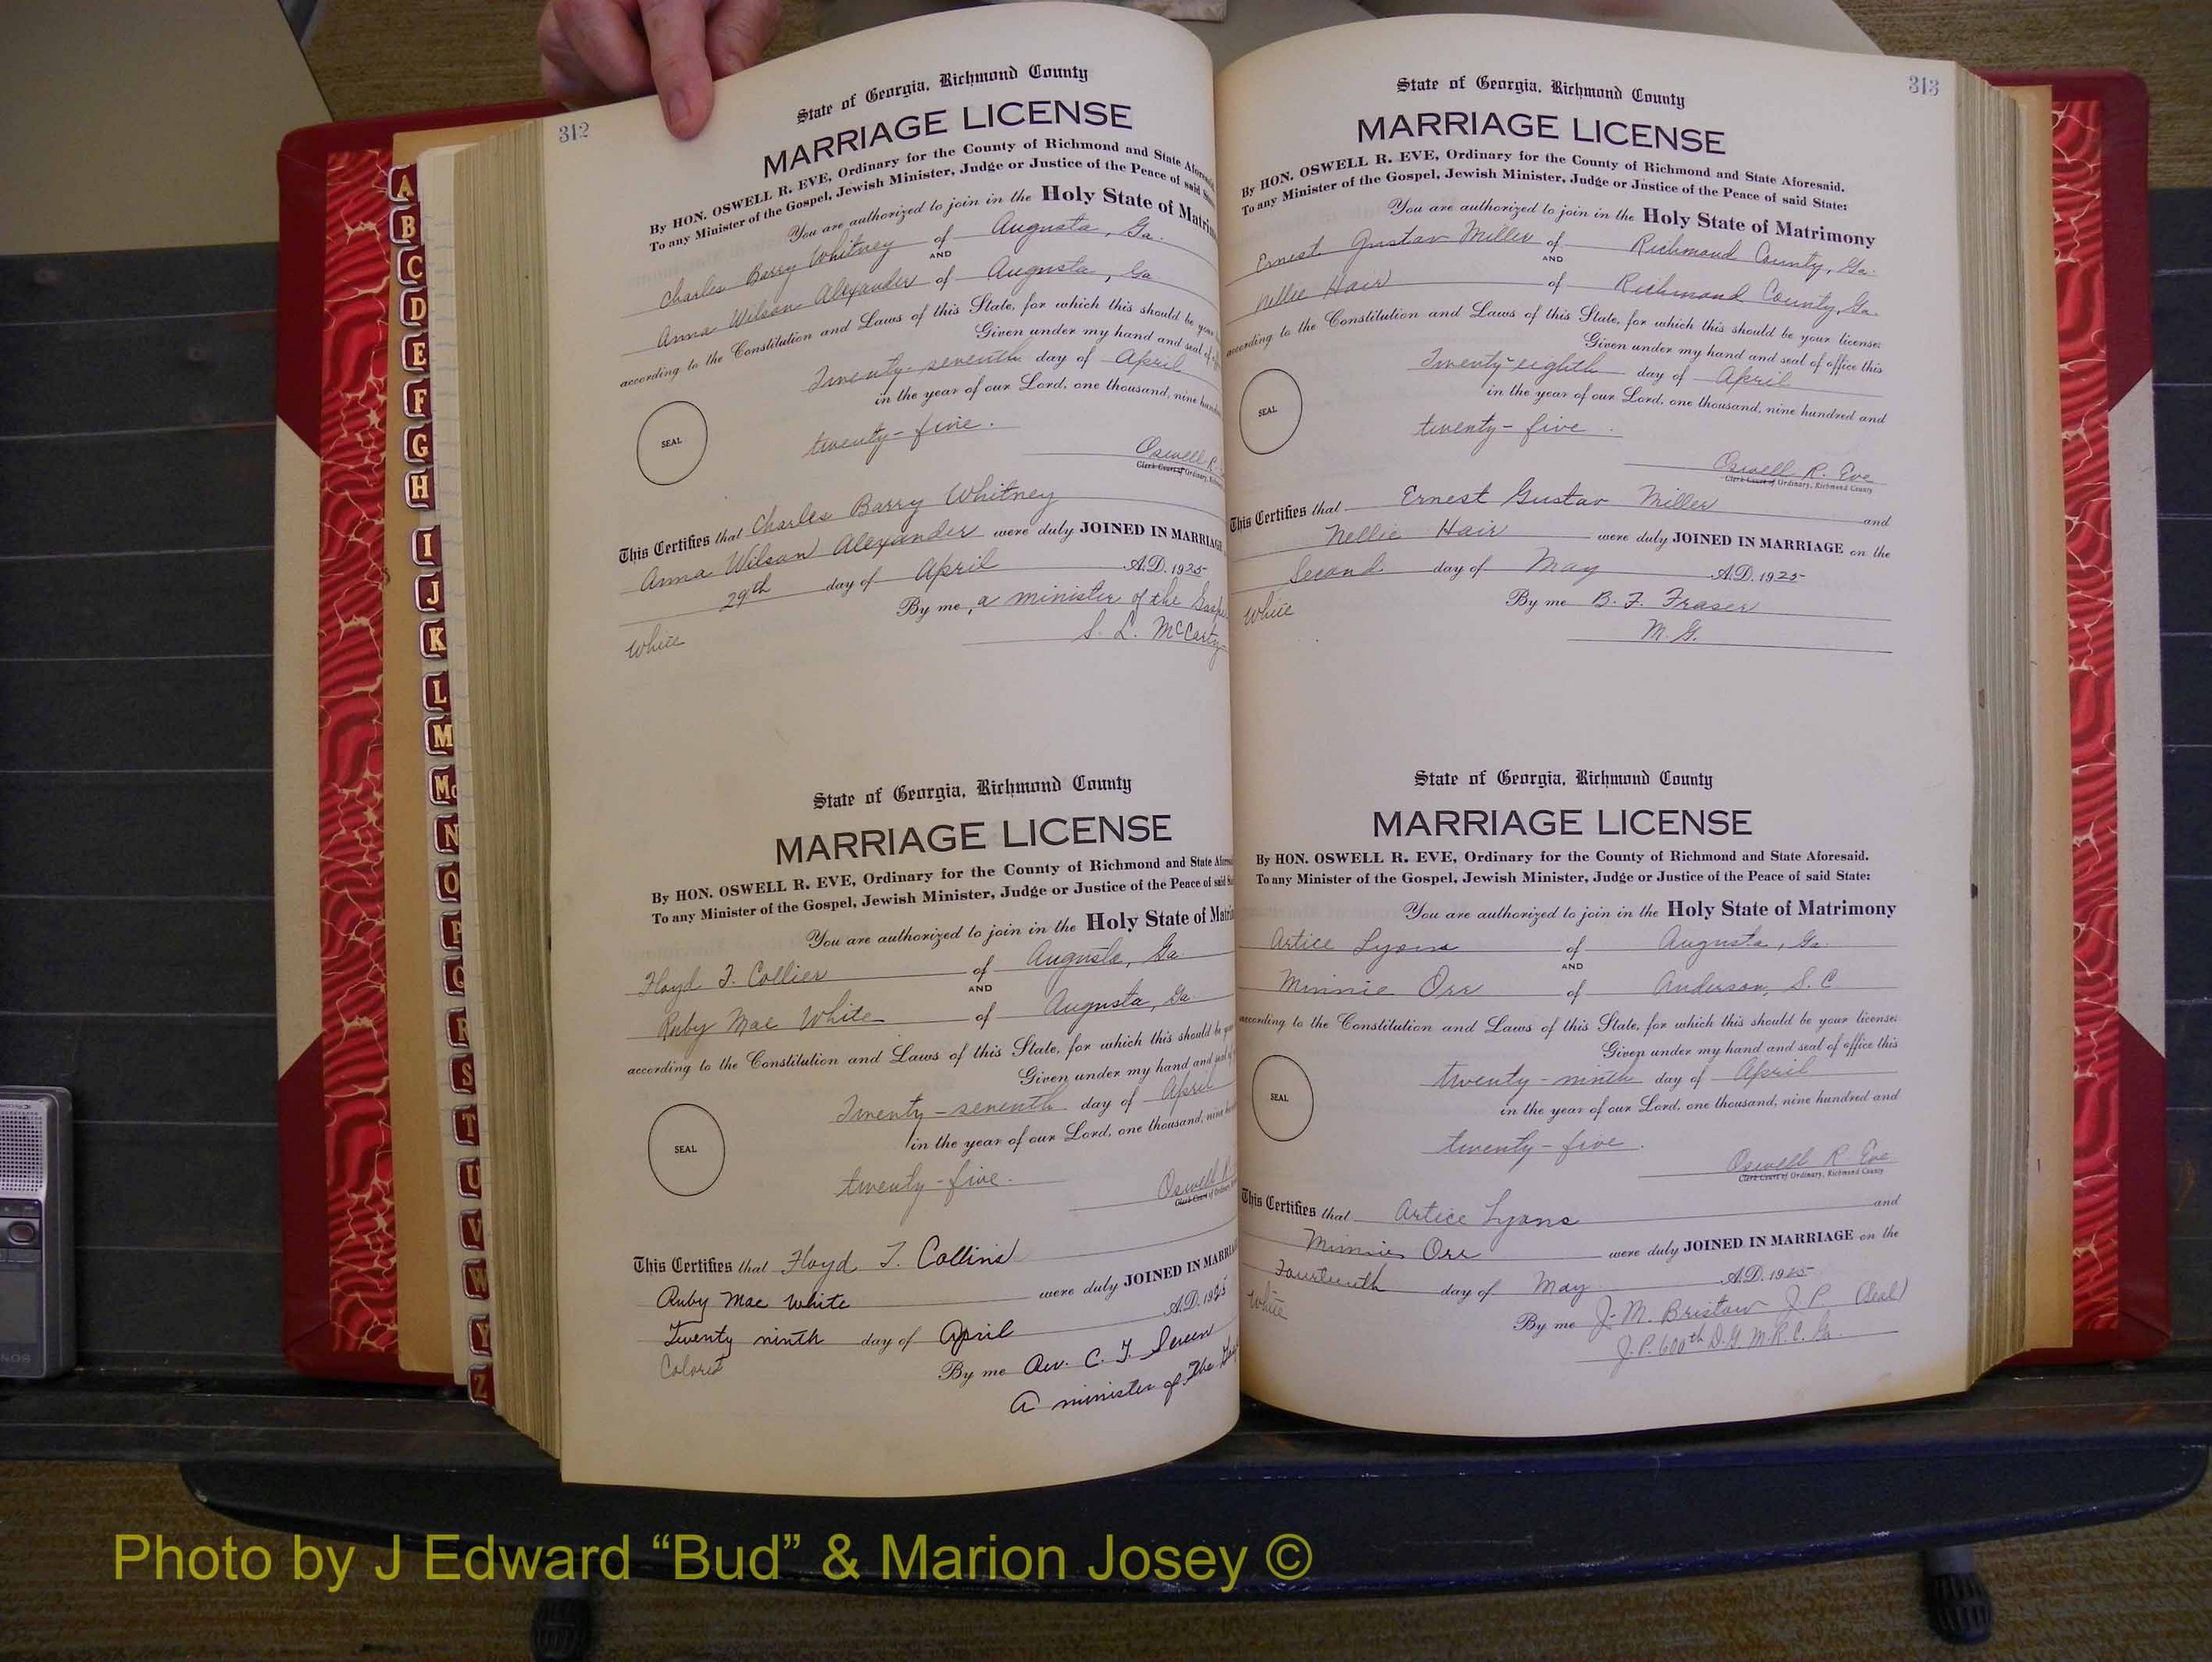 312
State of Georgia, Richmond County
MARRIAGE LICENSE
By HON. OSWELL R. EVE, Ordinary for the County of Richmond and State Aforesaid.
To any Minister of the Gospel, Jewish Minister, Judge or Justice of the Peace of said
You are authorized to join in the Holy State of Matrim
Charles Barry Whitney of Augusta, Ga.
AND
Anna Wilson Alexander of Augusta, Ga
according to the Constitution and Laws of this State, for which this should be your
Given under my hand and seal of
Twenty-seventh day of April
in the year of our Lord, one thousand, nine hund
SEAL
twenty-five.
Oswell R.
Clerk Court of Ordinary,
This Certifies that Charles Barry Whitney
Anna Wilson Alexander were duly JOINED IN MARRIAGE
29th day of April A.D. 1925
By me, a minister of the Gospe
White
S. L. McCarty
State of Georgia, Richmond County
MARRIAGE LICENSE
By HON. OSWELL R. EVE, Ordinary for the County of Richmond and State
To any Minister of the Gospel, Jewish Minister, Judge or Justice of the Peace of said
You are authorized to join in the Holy State of Matrim
Floyd T. Collier of Augusta, Ga
AND
Ruby Mae White of Augusta, Ga.
according to the Constitution and Laws of this State, for which this should be
Given under my hand and seal
Twenty-seventh day of April
in the year of our Lord, one thousand, nine
SEAL
twenty-five.
Oswell R
Clerk Court of
This Certifies that Floyd T. Collins
Ruby Mae White were duly JOINED IN MARRIA
Twenty ninth day of April A.D. 1925
Colored
By me Rev. C. T.
A minister of The
313
State of Georgia, Richmond County
MARRIAGE LICENSE
By HON. OSWELL R. EVE, Ordinary for the County of Richmond and State Aforesaid.
To any Minister of the Gospel, Jewish Minister, Judge or Justice of the Peace of said State:
You are authorized to join in the Holy State of Matrimony
Ernest Gustav Miller of Richmond County, Ga.
AND
Nellie Hair of Richmond County, Ga.
according to the Constitution and Laws of this State, for which this should be your license:
Given under my hand and seal of office this
Twenty-eighth day of April
in the year of our Lord, one thousand, nine hundred and
SEAL
twenty-five.
Oswell R. Eve
Clerk Court of Ordinary, Richmond County
This Certifies that Ernest Gustav Miller and
Nellie Hair were duly JOINED IN MARRIAGE on the
Second day of May A.D. 1925
White
By me B. F. Fraser
M. G.
State of Georgia, Richmond County
MARRIAGE LICENSE
By HON. OSWELL R. EVE, Ordinary for the County of Richmond and State Aforesaid.
To any Minister of the Gospel, Jewish Minister, Judge or Justice of the Peace of said State:
You are authorized to join in the Holy State of Matrimony
Artice Lyons of Augusta, Ga.
AND
Minnie Orr of Anderson, S. C.
according to the Constitution and Laws of this State, for which this should be your license:
Given under my hand and seal of office this
twenty-ninth day of April
in the year of our Lord, one thousand, nine hundred and
SEAL
twenty-five.
Oswell R Eve
Clerk Court of Ordinary, Richmond County
This Certifies that Artice Lyons and
Minnie Orr were duly JOINED IN MARRIAGE on the
Fourteenth day of May A.D. 1925
White
By me J. M. Bristow J. P. (Seal)
J. P. 600th D. G. M. R. C. Ga.
A
B
C
D
E
F
G
H
I
J
K
L
M
Mc
N
O
P
Q
R
S
T
U
V
W
Y
Z
Photo by J Edward “Bud” & Marion Josey ©